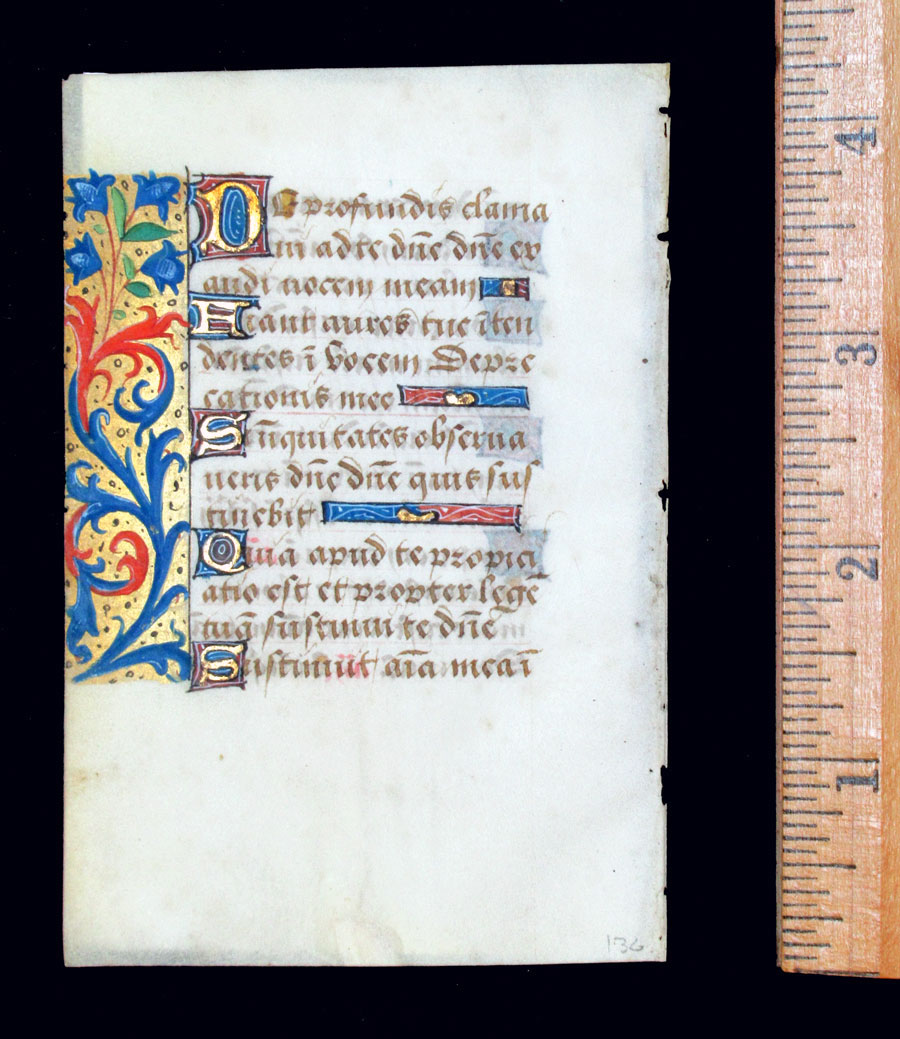 De profundis clama
ui ad te dñe dñe ex
audi uocem meam
Fiant aures tue ĩten
dentes ĩ vocem Depre
cationis mee
Si ĩiquitates obserua
ueris dñe dñe quis sus
tinebit
Quia apud te propici
atio est et propter legẽ
tuã sustinui te dñe
Sustinuit aĩa mea ĩ
136
4
3
2
1